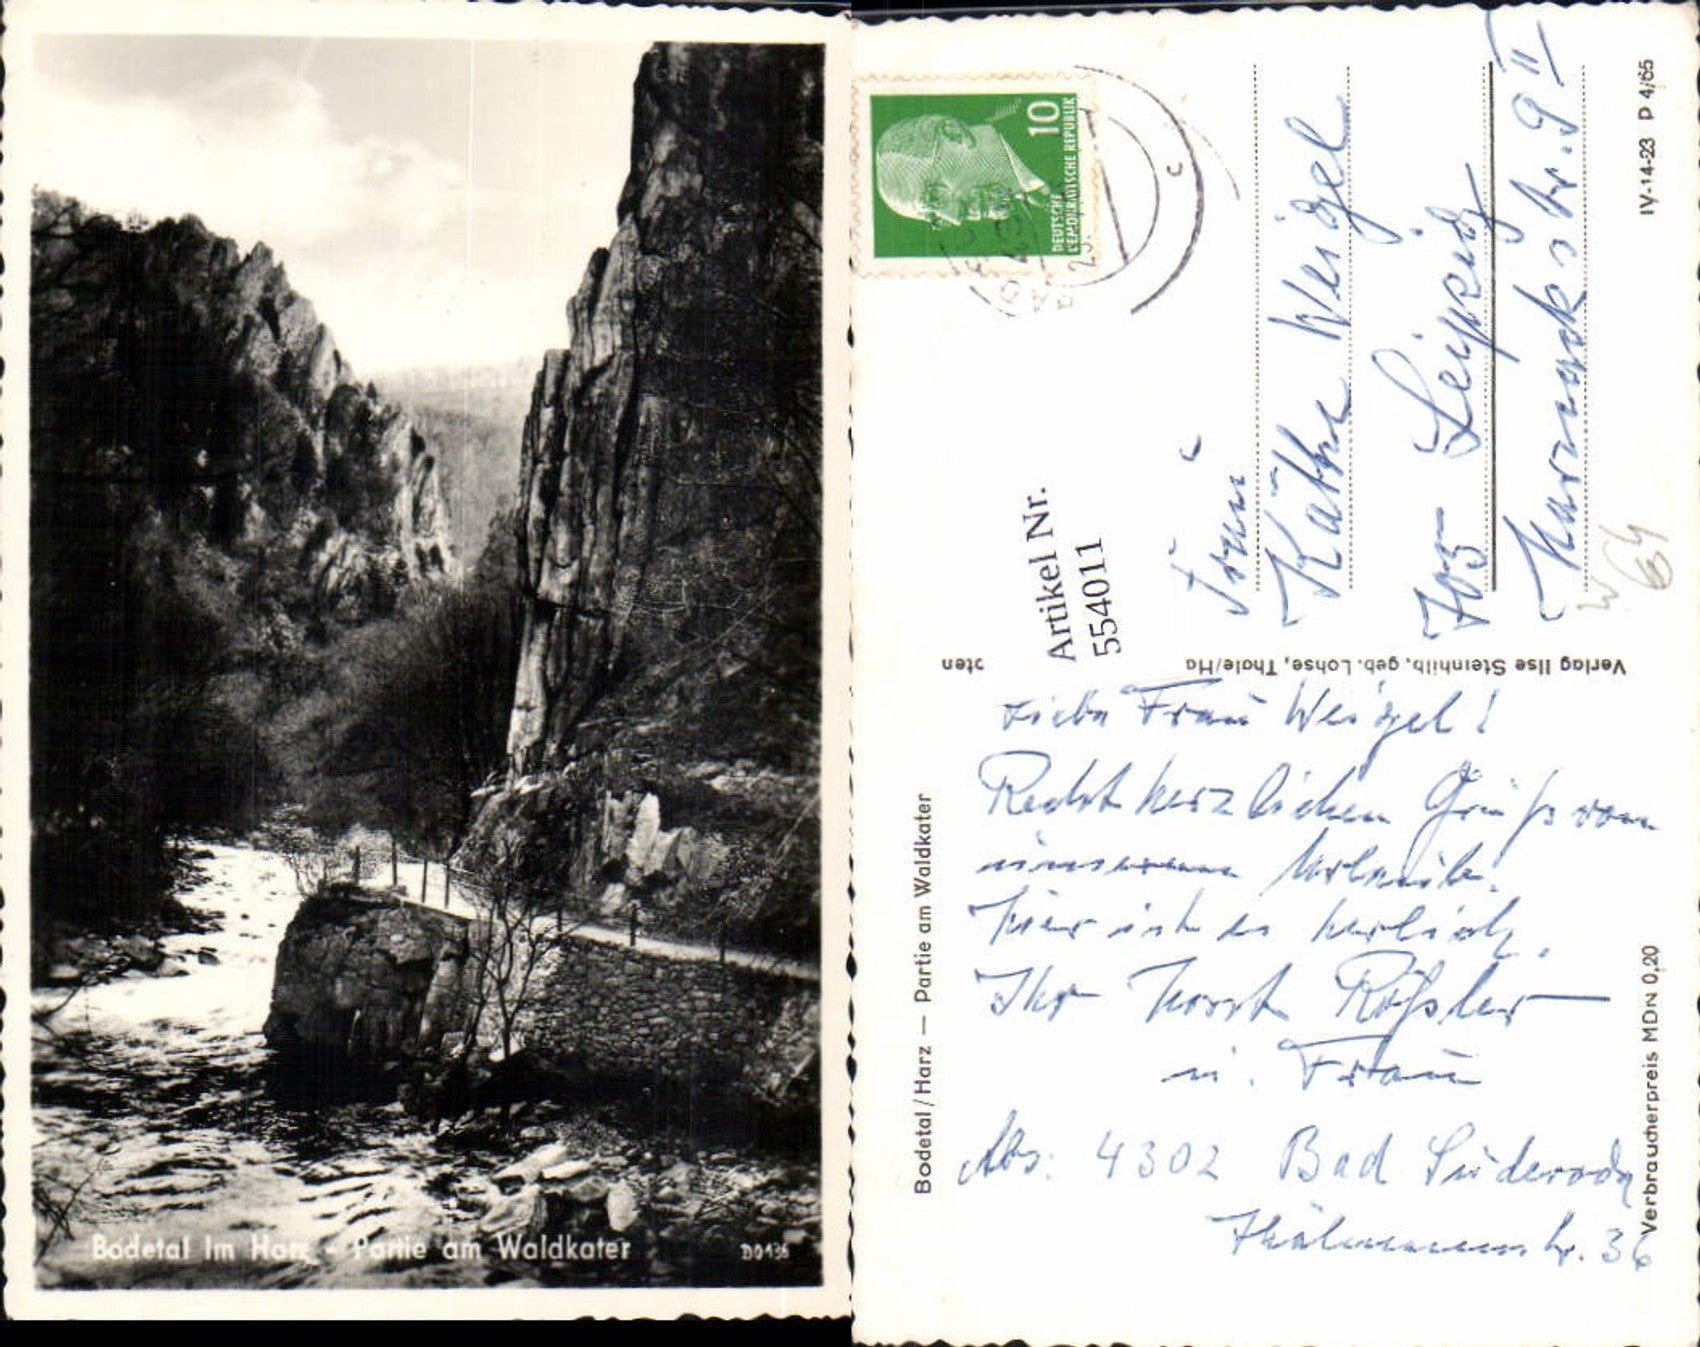 Bodetal im Harz - Partie am Waldkater
D0136
10
DEUTSCHE
DEMOKRATISCHE REPUBLIK
c
Artikel Nr.
554011
Frau
Käthe Weigel
703 Leipzig
str. 9 II
W
64
IV-14-23 P 4/65
Verlag Ilse Steinhilb, geb. Lohse, Thale/Ha
oten
Bodetal / Harz — Partie am Waldkater
Verbraucherpreis MDN 0,20
Liebe Frau Weigel!
Recht herzlichen Grüße vom
unserem Urlaub.
Hier ist es herrlich.
Ihr Horst Rößler
u. Frau
Abs: 4302 Bad Suderode
Thälmannstr. 36